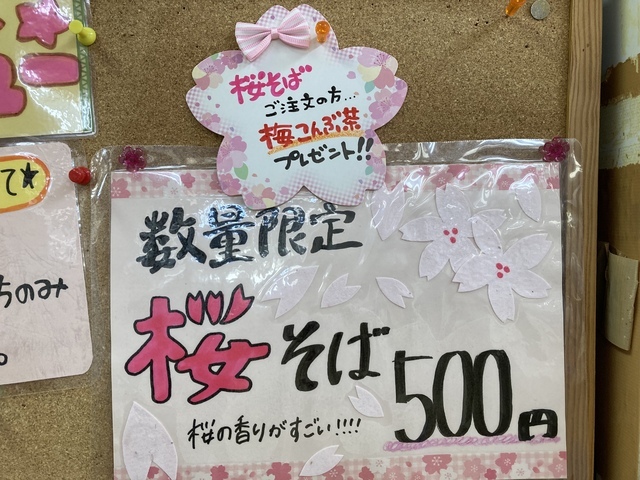 桜そば
ご注文の方…
梅こんぶ茶
プレゼント!!
て★
ちのみ
。
数量限定
桜そば 500円
桜の香りがすごい!!!!